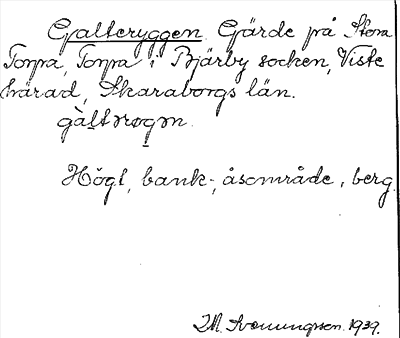 Galteryggen. Gärde på Stora
Torpa, Torpa i Bjärby socken, Viste
härad, Skaraborgs län.
gàltrøgən.
Högt, bank-, åsområde, berg.
M. Svenungsson. 1939.